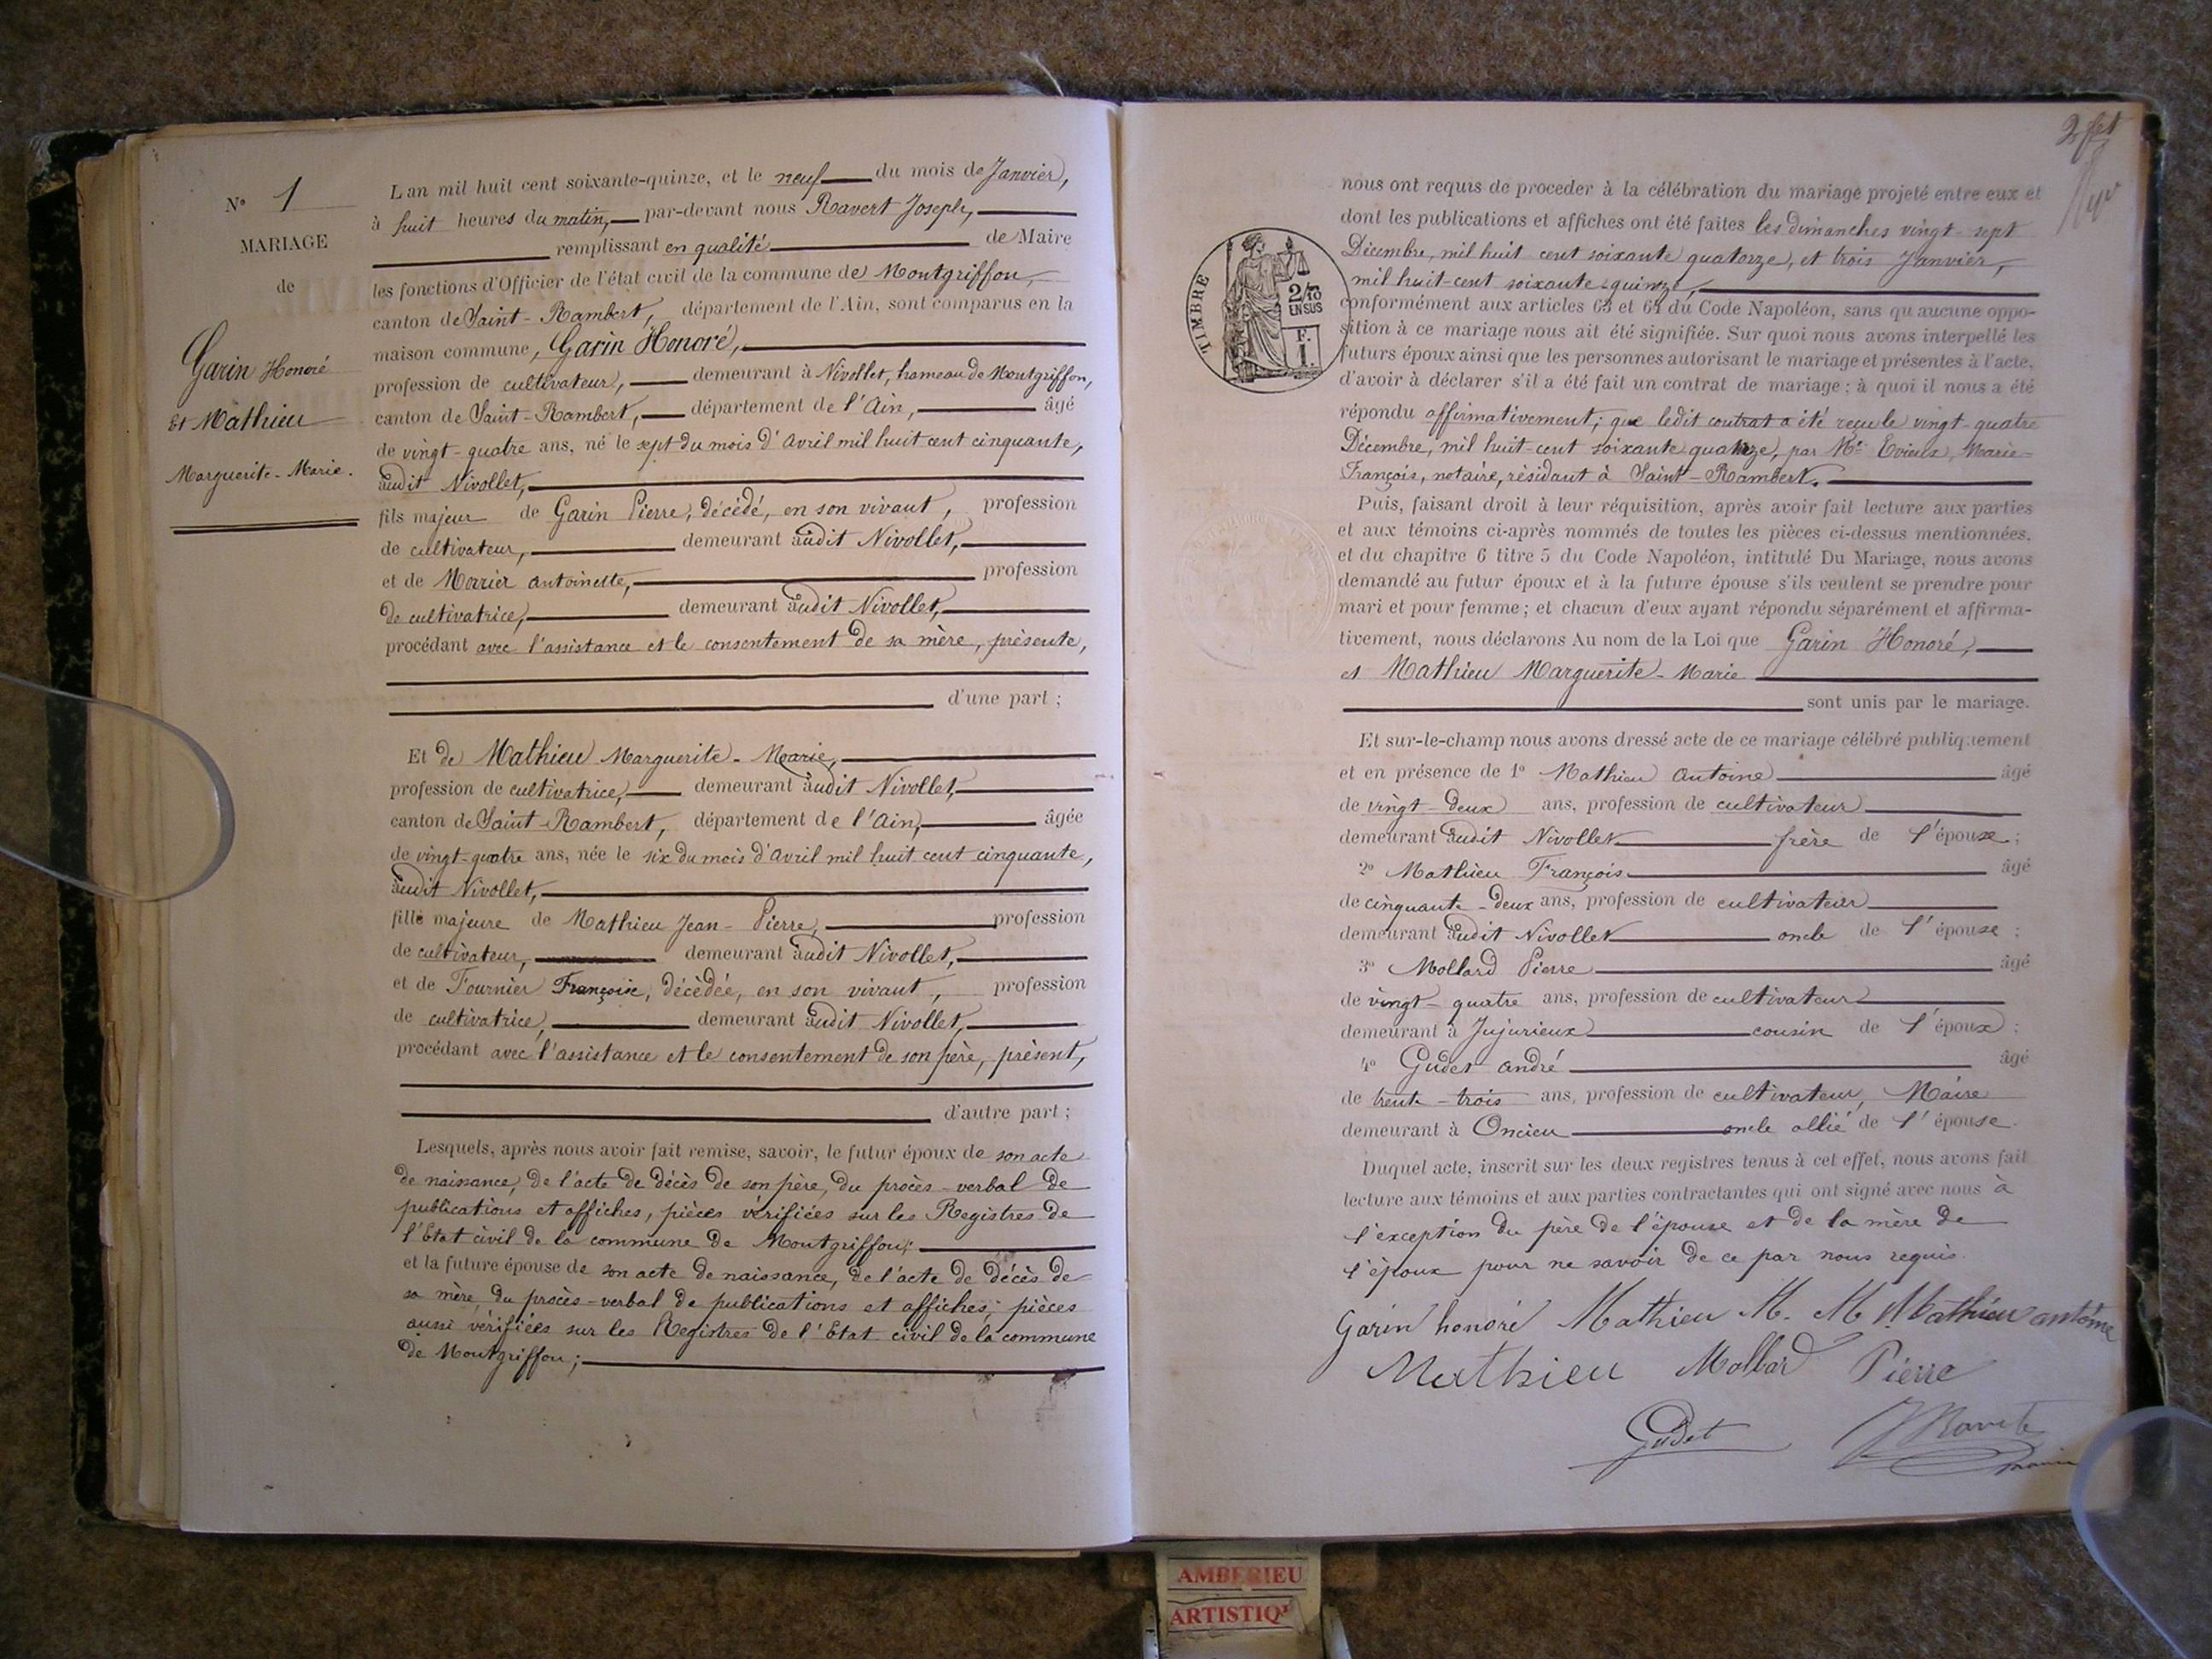 N° 1
MARIAGE
de
Garin Honoré
et Mathieu
Marguerite-Marie.
L'an mil huit cent soixante-quinze, et le neuf du mois de Janvier,
à huit heures du matin, par-devant nous Ravert Joseph,
remplissant en qualité de Maire
les fonctions d'Officier de l'état civil de la commune de Montgriffon,
canton de Saint-Rambert, département de l'Ain, sont comparus en la
maison commune, Garin Honoré,
profession de cultivateur, demeurant à Nivollet, hameau de Montgriffon,
canton de Saint-Rambert, département de l'Ain, âgé
de vingt-quatre ans, né le sept du mois d'avril mil huit cent cinquante,
audit Nivollet,
fils majeur de Garin Pierre, décédé, en son vivant, profession
de cultivateur, demeurant audit Nivollet,
et de antoinette, profession
de cultivatrice, demeurant audit Nivollet,
procédant avec l'assistance et le consentement de sa mère, présente,
d'une part ;
Et de Mathieu Marguerite-Marie,
profession de cultivatrice, demeurant audit Nivollet,
canton de Saint-Rambert, département de l'Ain, âgée
de vingt-quatre ans, née le six du mois d'avril mil huit cent cinquante,
audit Nivollet,
fille majeure de Mathieu Jean-Pierre, profession
de cultivateur, demeurant audit Nivollet,
et de Fournier Françoise, décédée, en son vivant, profession
de cultivatrice, demeurant audit Nivollet,
procédant avec l'assistance et le consentement de son père, présent,
d'autre part ;
Lesquels, après nous avoir fait remise, savoir, le futur époux de son acte
de naissance, de l'acte de décès de son père, du procès-verbal de
publications et affiches, pièces vérifiées sur les Registres de
l'Etat civil de la commune de Montgriffon;
et la future épouse de son acte de naissance, de l'acte de décès de
sa mère, du procès-verbal de publications et affiches, pièces
aussi vérifiées sur les Registres de l'Etat civil de la commune
de Montgriffon;
nous ont requis de proceder à la célébration du mariage projeté entre eux et
dont les publications et affiches ont été faites les dimanches vingt-sept
Décembre, mil huit cent soixante quatorze, et trois Janvier,
mil huit-cent soixante-quinze,
conformément aux articles 63 et 64 du Code Napoléon, sans qu'aucune oppo-
sition à ce mariage nous ait été signifiée. Sur quoi nous avons interpellé les
futurs époux ainsi que les personnes autorisant le mariage et présentes à l'acte,
d'avoir à déclarer s'il a été fait un contrat de mariage ; à quoi il nous a été
répondu affirmativement; que ledit contrat a été reçu le vingt-quatre
Décembre, mil huit-cent soixante quatorze, par Me Marie-
François, notaire, résidant à Saint-Rambert.
Puis, faisant droit à leur réquisition, après avoir fait lecture aux parties
et aux témoins ci-après nommés de toutes les pièces ci-dessus mentionnées,
et du chapitre 6 titre 5 du Code Napoléon, intitulé Du Mariage, nous avons
demandé au futur époux et à la future épouse s'ils veulent se prendre pour
mari et pour femme ; et chacun d'eux ayant répondu séparément et affirma-
tivement, nous déclarons Au nom de la Loi que Garin Honoré,
et Mathieu Marguerite-Marie
sont unis par le mariage.
Et sur-le-champ nous avons dressé acte de ce mariage célébré publiquement
et en présence de 1° Mathieu Antoine âgé
de vingt-deux ans, profession de cultivateur
demeurant audit Nivollet frère de l'épouse ;
2° Mathieu François âgé
de cinquante-deux ans, profession de cultivateur
demeurant audit Nivollet oncle de l'épouse ;
3° Mollard Pierre âgé
de vingt-quatre ans, profession de cultivateur
demeurant à Jujurieux cousin de l'époux ;
4° Gudet andré âgé
de trente-trois ans, profession de cultivateur, Maire
demeurant à Oncieu oncle allié de l'épouse.
Duquel acte, inscrit sur les deux registres tenus à cet effet, nous avons fait
lecture aux témoins et aux parties contractantes qui ont signé avec nous à
l'exception du père de l'épouse et de la mère de
l'époux pour ne savoir de ce par nous requis.
Garin honoré Mathieu M. M Mathieu antoine
Mathieu Mollard Pierre
Gudet
TIMBRE
2/10
EN SUS
F.
1.
AMBERIEU
ARTISTIQ